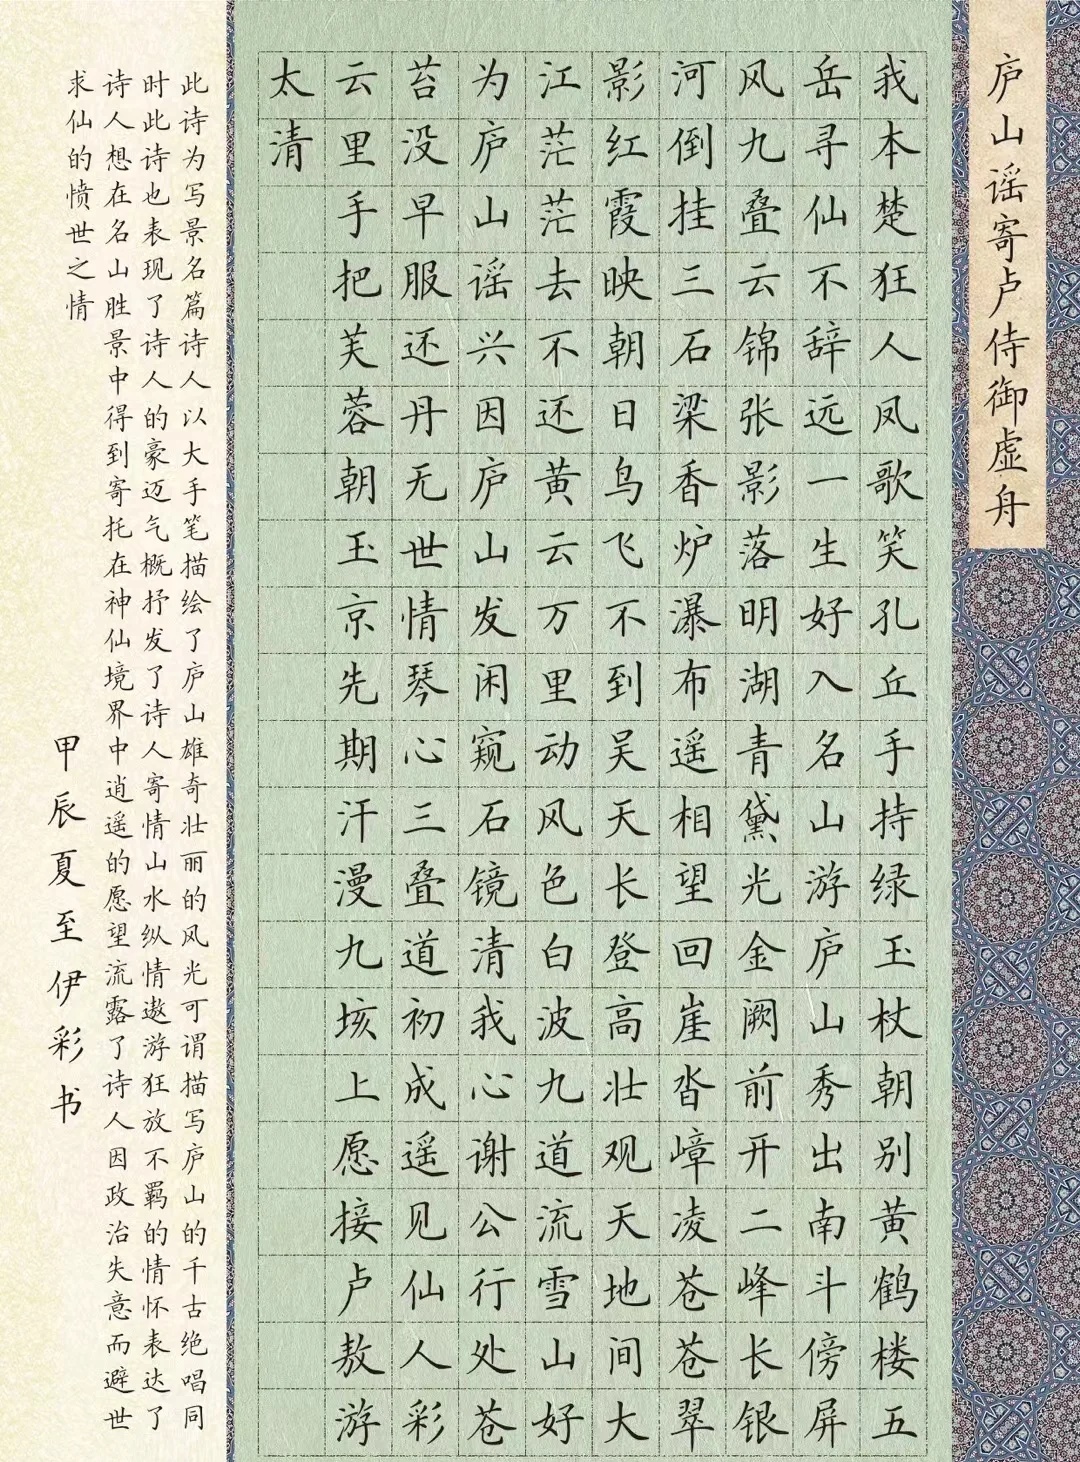 庐山谣寄卢侍御虚舟
我本楚狂人凤歌笑孔丘手持绿玉杖朝别黄鹤楼五
岳寻仙不辞远一生好入名山游庐山秀出南斗傍屏
风九叠云锦张影落明湖青黛光金阙前开二峰长银
河倒挂三石梁香炉瀑布遥相望回崖沓嶂凌苍苍翠
影红霞映朝日鸟飞不到吴天长登高壮观天地间大
江茫茫去不还黄云万里动风色白波九道流雪山好
为庐山谣兴因庐山发闲窥石镜清我心谢公行处苍
苔没早服还丹无世情琴心三叠道初成遥见仙人彩
云里手把芙蓉朝玉京先期汗漫九垓上愿接卢敖游
太清
此诗为写景名篇诗人以大手笔描绘了庐山雄奇壮丽的风光可谓描写庐山的千古绝唱同
时此诗也表现了诗人的豪迈气概抒发了诗人寄情山水纵情遨游狂放不羁的情怀表达了
诗人想在名山胜景中得到寄托在神仙境界中逍遥的愿望流露了诗人因政治失意而避世
求仙的愤世之情
甲辰夏至伊彩书